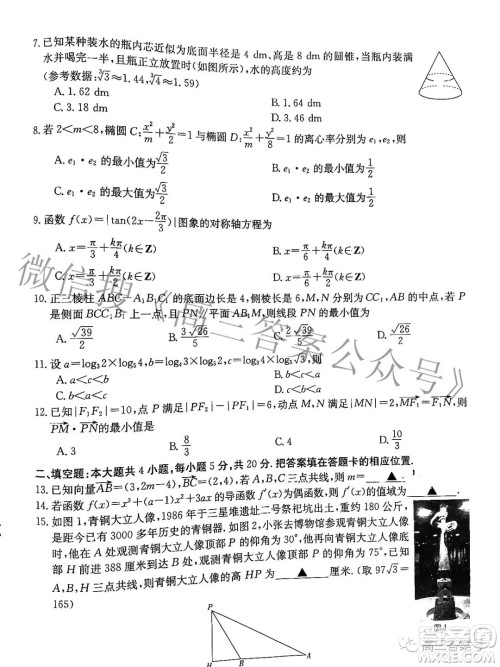 7. 已知某种装水的瓶内芯近似为底面半径是 4 dm、高是 8 dm 的圆锥，当瓶内装满
水并喝完一半，且瓶正立放置时(如图所示)，水的高度约为
(参考数据：∛3≈1.44，∛4≈1.59)
A. 1.62 dm B. 1.64 dm
C. 3.18 dm D. 3.46 dm
8. 若 2<m<8，椭圆 C：x²/m+y²/2=1 与椭圆 D：x²/m+y²/8=1 的离心率分别为 e₁，e₂，则
A. e₁·e₂ 的最小值为√3/2 B. e₁·e₂ 的最小值为1/2
C. e₁·e₂ 的最大值为√3/2 D. e₁·e₂ 的最大值为1/2
9. 函数 f(x)=|tan(2x−2π/3)|图象的对称轴方程为
A. x=π/3+kπ/4(k∈Z) B. x=π/6+kπ/4(k∈Z)
C. x=π/3+kπ/2(k∈Z) D. x=π/6+kπ/2(k∈Z)
10. 正三棱柱 ABC−A₁B₁C₁ 的底面边长是 4，侧棱长是 6，M，N 分别为 CC₁，AB 的中点，若 P
是侧面 BCC₁B₁ 上一点，且 PN∥平面 AB₁M，则线段 PN 的最小值为
A. √39/2 B. 3√26/5 C. √39/5 D. √26/2
11. 设 a=log₃2×log₅4，b=log₃
A. a<c<b B. c<a<b
C. b<c<a D. a<b<c
12. 已知 |F₁F₂|=10，点 P 满足|PF₂|−|PF₁|=6，动点 M，N 满足|MN|=2，MF₁=F₁N，则
PM·PN的最小值为
A. 3 B. 8/3 C. 4 D. 10/3
二、填空题：本大题共 4 小题，每小题 5 分，共 20 分. 把答案填在答题卡的相应位置.
13. 已知向量AB=(3,2m−4)，BD=(2,4)，若 A，B，D 三点共线，则 m= ▲ .
14. 若函数 f(x)=x⁴+(a−1)x³+3ax 的导函数 f′(x)为偶函数，则 f′(1)= ▲ .
15. 如图 1，青铜大立人像，1986 年于三星堆遗址二号祭祀坑出土，重约 180 公斤，
是距今已有 3000 多年历史的青铜器. 如图 2，小张去博物馆参观青铜大立人像
时，他在 A 处观测青铜大立人像顶部 P 的仰角为 30°，他再向青铜大立人像
前进 388 厘米到 B 处，此时观测青铜大立人像顶部 P 的仰角为 75°，已知 A，
B，H 三点共线，则青铜大立人像的高 HP 为 ▲ 厘米. (取 97√3=
165)
P
H
B
A
图1
微信搜《高三答案公众号》